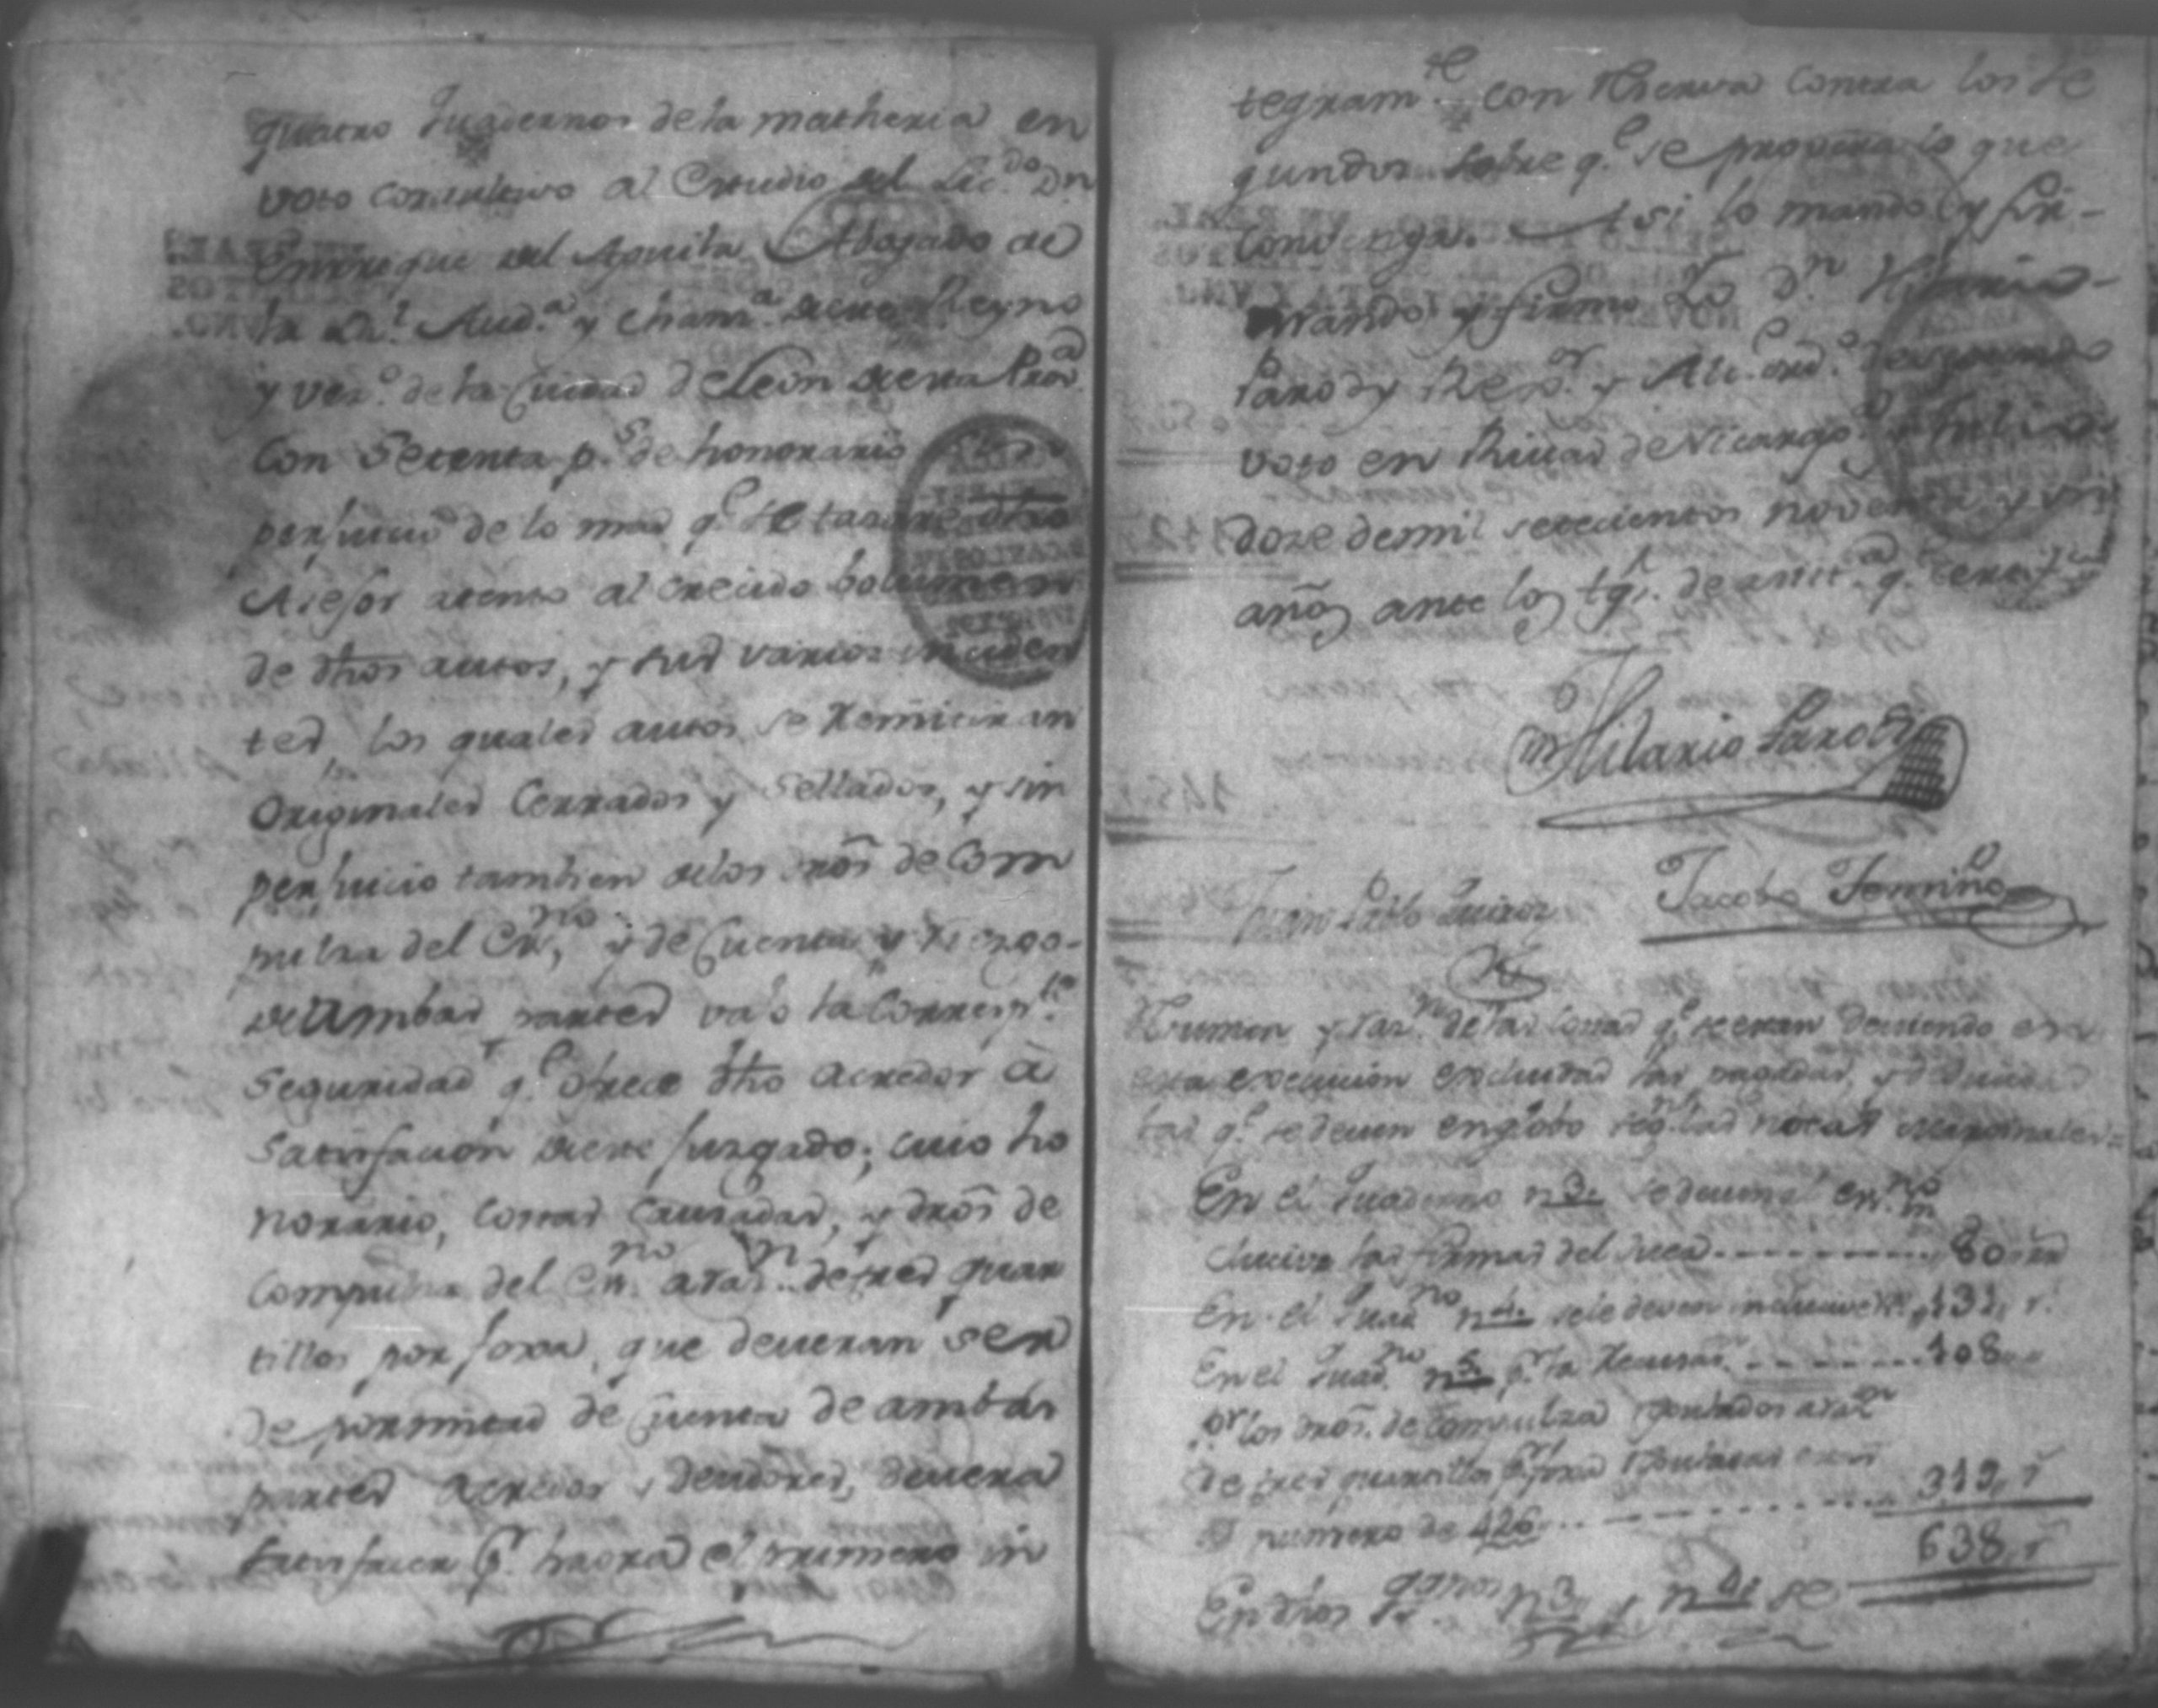 quatro Quadernos de la matheria en
voto consultivo al Estudio del Lic.do Dn
Enrrique del Aguila Abogado de
la Rl. Aud.a y Cham.a de este Reyno
y vez.o de la Ciudad de Leon de esta Prov.a
con Setenta p.s de honorario
perjuicio de lo mas q.e se tasare dho
Asesor atento al crecido bolumen
de dhos autos, y sus varios inciden
tes, los quales autos se remitiran
Originales Cerrados y Sellados, y sin
perjuicio tambien de los dros de Com
pulsa del Es.no y de Cuenta y riezgo
de Ambas partes vajo la Corresp.te
seguridad q.e ofrece dho Acredor à
satisfacion de este Juzgado; cuio ho
norario, costas causadas, y dros de
compulsa del Es.no a raz.n de tres quar
tillos por foxa, que deveran ser
de por mitad de Cuenta de ambas
partes Acredor y deudores, devera
satisfacer p.r haora el primero in
tegram.te con Reserva contra los se
gundos sobre q.e se proveera lo que
convenga. Asi lo mandò y fir-
mando y firmo Yo D.n Hilario
Parody Rex.or y Alc.e ord.o de segundo
voto en Rivas de Nicarag.a Julio
doze de mil setecientos noventa y un
años ante los tgs. de asist.a q.e certifico
Hilario Parody
Juan Pablo Quiroz
Jacobo Fermiño
Resumen y raz.n de las costas q.e se estan deviendo en
esta execucion excluidas las pagadas, y
las q.e se deven segun las notas marginales=
En el Quaderno n 3. se deven al Es.no in
clusive las firmas del Juez 80 rr
En el Quad.no n 4. se le deven inclusive 131, r.
En el Quad.no n 5. p.r la 108
P.r los dros. de Compulsa a raz.n
de tres quartillos p.r foxa
numero de 426 319, r
638, r
En dhos n 3. y n 4. se